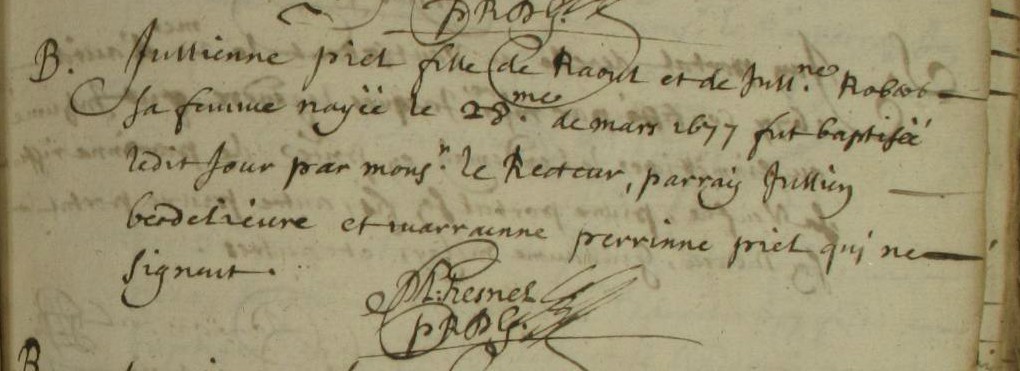 PRDG.
B. Jullienne priet fille de Raoul et de Jull.ne Robert
sa femme nayëe le 28.me de mars 1677 fut baptiséé
ledit Jour par mons.r le Recteur, parrain Jullien
berdelieure et marrainne perrinne priet qui ne
signent.
Resnel
PRDG.
B